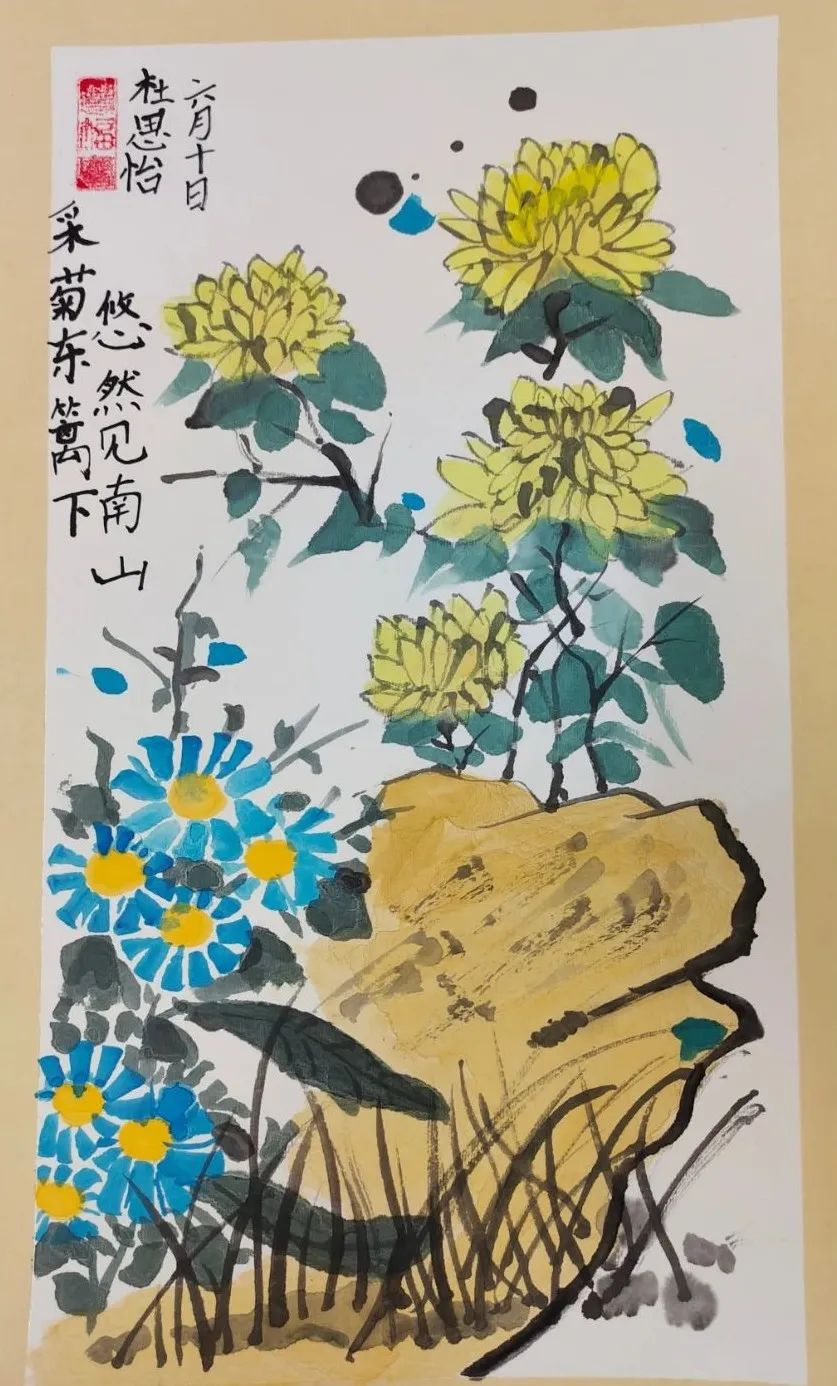 六月十日
杜思怡
悠然见南山
采菊东篱下